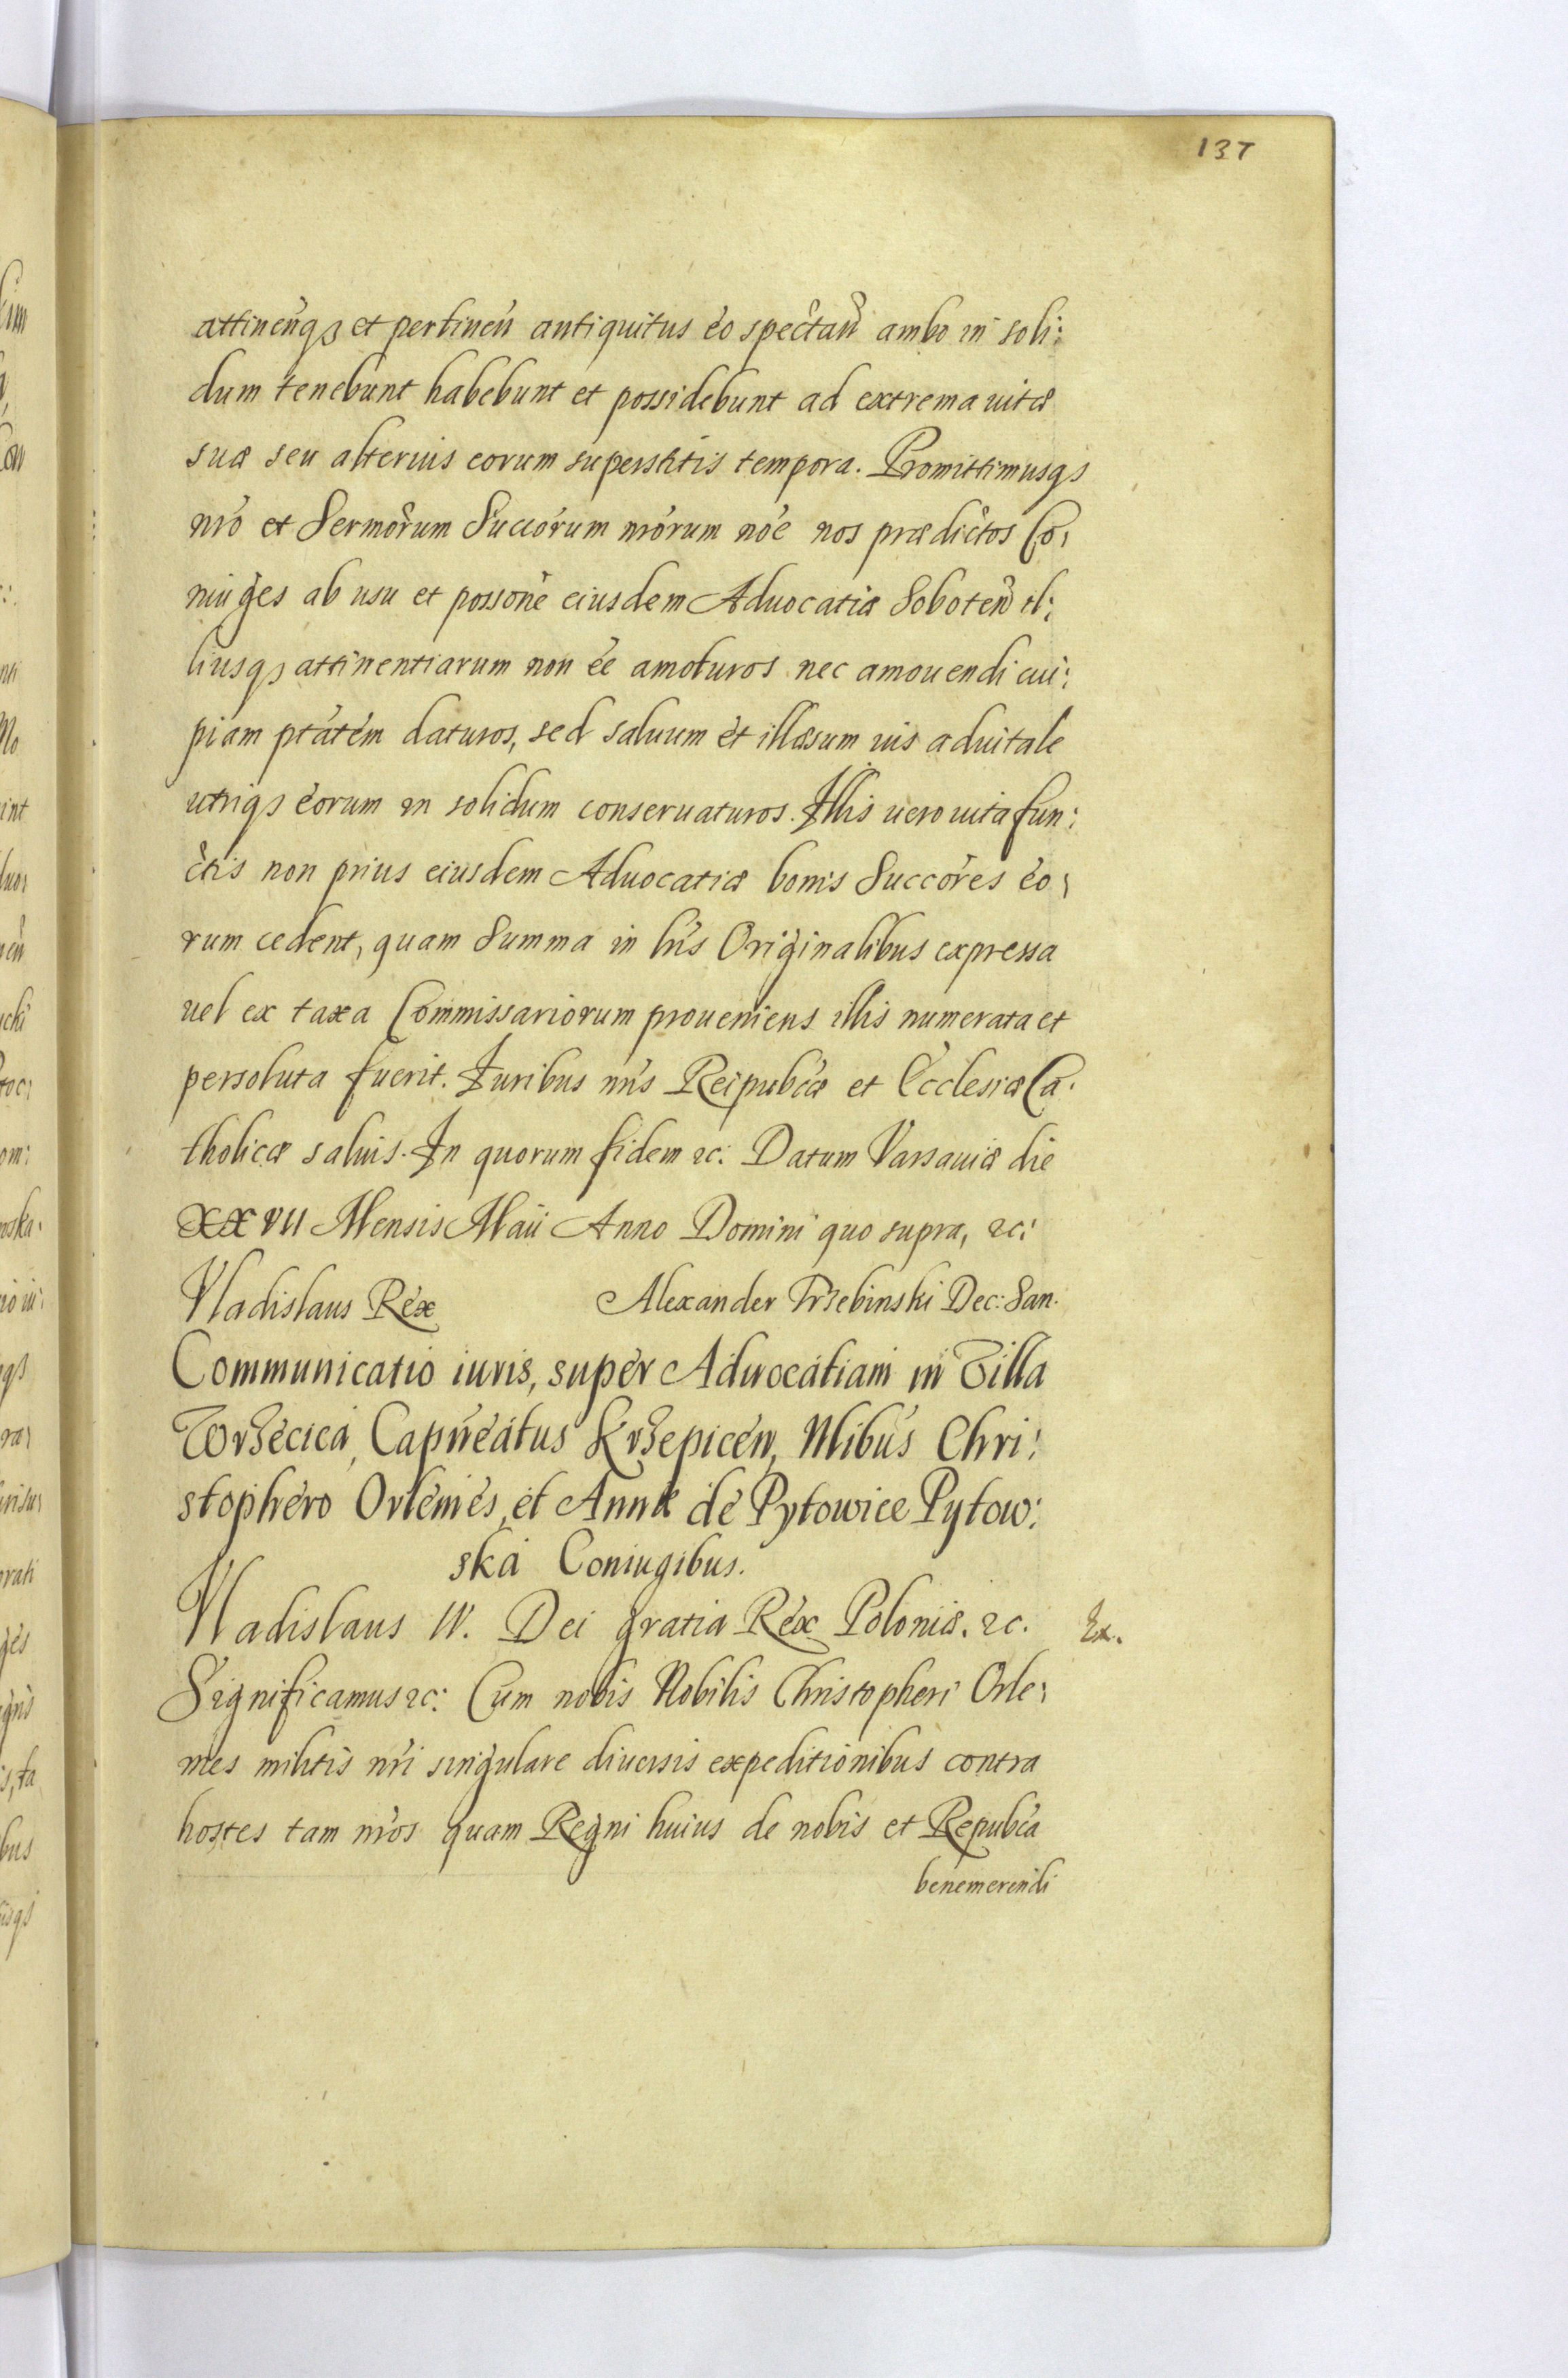 137
attineñqs et pertineñ antiquitus eo spectañ ambo in soli:
dum tenebunt habebunt et possidebunt ad extrema uitæ
suæ seu alterius eorum superstitis tempora. Promittimusqs
nr̃o et Sermõrum Succõrum nr̃orum nõe nos prædictos Co:
niuges ab usu et possone eiusdem Aduocatiæ Soboteñ il:
liusqs attinentiarum non ee amoturos nec amouendi cui:
piam ptatem daturos, sed saluum et illæsum ius aduitale
utriqs eorum in solidum conseruaturos. Illis uero uita fun:
ctis non prius eiusdem Aduocatiæ bonis Succores eo:
rum cedent, quam Summa in lris Originalibus expressa
uel ex taxa Commissariorum proueniens illis numerata et
persoluta fuerit. Iuribus nr̃is Reipubcæ et Ecclesiæ Ca:
tholicæ saluis. In quorum fidem ꝛc: Datum Varsauiæ die
XXVII Mensis Maii Anno Domini quo supra, ꝛc:
Vladislaus Rex Alexander Trzebinski Dec: San.
Communicatio iuris, super Aduocatiam in Villa
Torzecica, Capñeatus Krzepiceñ, Nlibus Chri:
stophero Orlemes, et Annæ de Pytowice Pytow:
ska Coniugibus.
Vladislaus IV. Dei gratia Rex Poloniæ. ꝛc. Ex.
Significamus ꝛc: Cum nobis Nobilis Christopheri Orle:
mes militis nr̃i singulare diuersis expeditionibus contra
hostes tam nr̃os quam Regni huius de nobis et Repubca
benemerendi